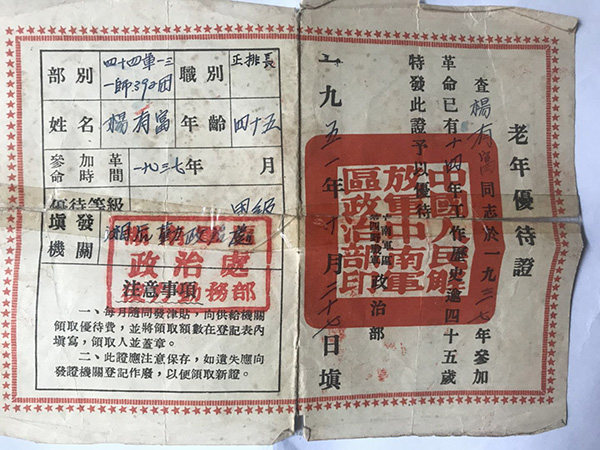 老年優待證
查楊有富同志於一九三七年參加
革命已有十四年工作歷史逾四十五歲
特發此證予以優待
中南軍區
政治部
一九五一年十月二十七日填
中國人民解
放軍中南軍
區政治部印
部別
四十四軍一三一師392团
職別
正排長
姓名
楊有富
年齡
四十五
參加革命時間
一九三七年 月
優待等級
甲級
填發機關
政治處
注意事項
一、每月隨同發津貼，向供給機關
領取優待費，並將領取額數在登記表內
填寫，領取人並蓋章。
二、此證應注意保存，如遺失應向
發證機關登記作廢，以便領取新證。